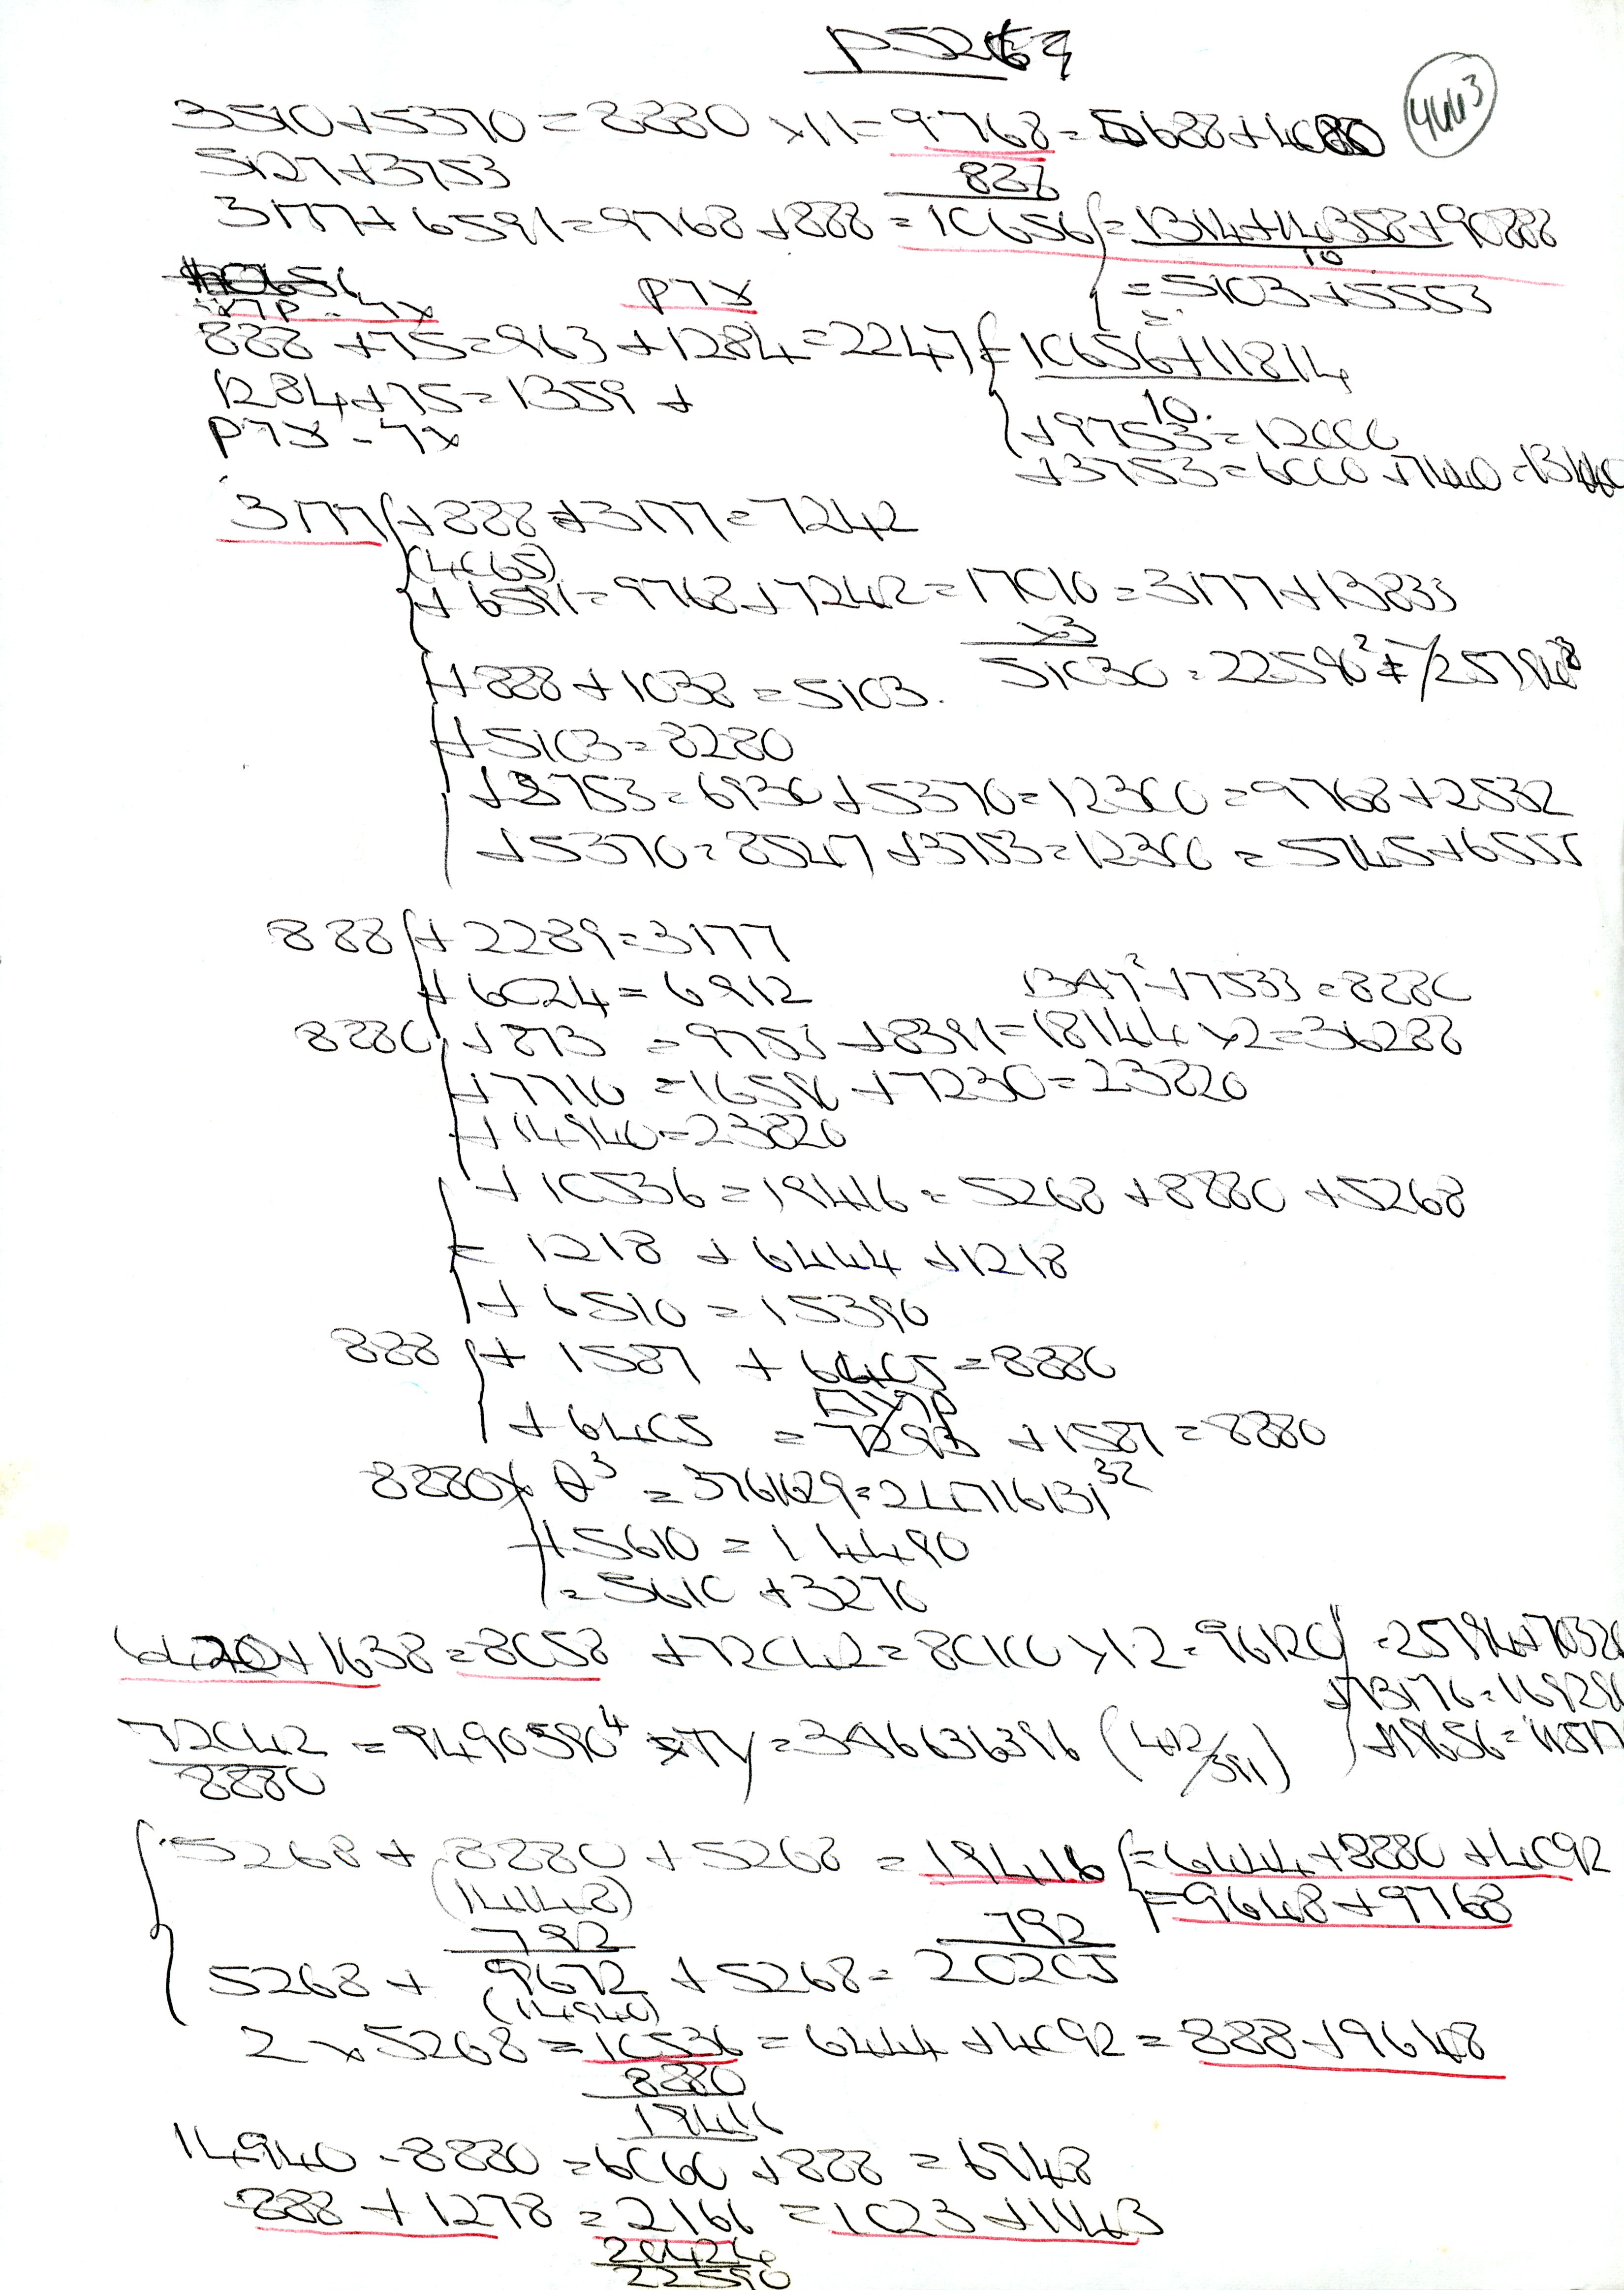 P5269
4443
3510+5370=8880 ×11=9768=5688+4080
5127+3753
888
3177+6591=9768+888=10656{=1314+14358+90888
10
=5103+5553
P7x
888+75=963+1284=2247{=10656+11814
10.
1284+75=1359+
+9753=12000
P7x-7x
+3753=6000+7440=13440
3177{+888+3177=7242
(4065)
+6591=9768+7242=17010=3177+13833
×3
+888+1038=5103. 51030=22590²
+5103=8280
+3753=6930+5370=12300=9768+2532
+5370=8547+3753=12300=5745+6555
888{+2289=3177
+6024=6912 1347²+7533=8880
8880{+873=9753+8391=18144×2=36288
+7710=16590+7230=23820
+14940=23820
+10536=19416=5268+8880+5268
=1218+6444+1218
+6510=15390
888{+1587+6405=8880
+6405=7293+1587=8880
8880{× θ³=376129=
+5610=14490
=5610+3270
6420+1638=8058+72042=80100×1.2=96120
+73176=
72042 = 9490590⁴ =346636396 (
8880
{5268+8880+5268=19416{=6444+8880+4092
(14148) =9648+9768
792 792
5268+9672+5268=20205
(14940)
2×5268=10536=6444+4092=888+9648
8880
19416
14940-8880=6060+888=6948
888+1278=2166=1023+1143
20424
22590